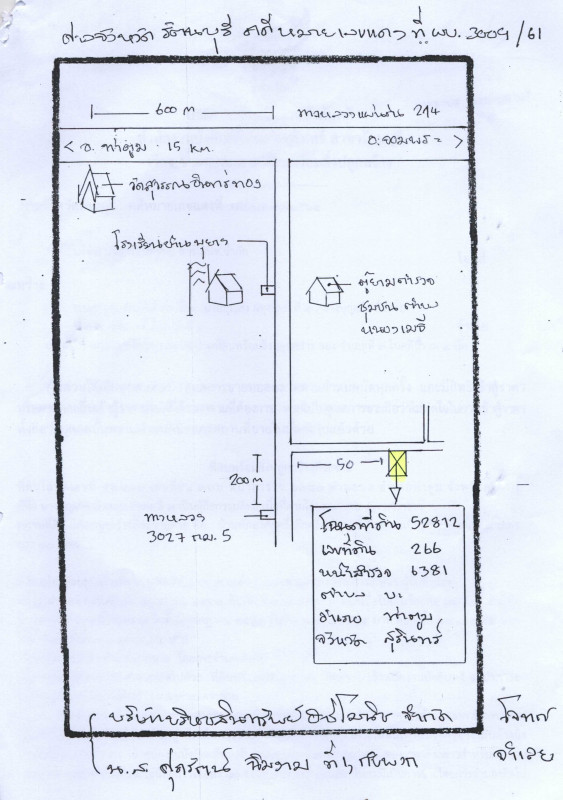 ศาลจังหวัดรัตนบุรี คดีหมายเลขแดงที่ ผบ. 3004/61
600 m
ทางหลวงแผ่นดิน 214
< อ. ท่าตูม 15 km.
อ.จอมพระ >
วัดสุวรรณ
โรงเรียนบ้าน
ตู้ยามตำรวจ
ชุมชน ตำบล
หนองเมธี
50
200 m
ทางหลวง
3027 กม. 5
โฉนดที่ดิน 52812
เลขที่ดิน 266
หน้าสำรวจ 6381
ตำบล บะ
อำเภอ ท่าตูม
จังหวัด สุรินทร์
บริษัทบริหารสินทรัพย์ จำกัด โจทก์
น.ส. ที่ 1 กับพวก จำเลย